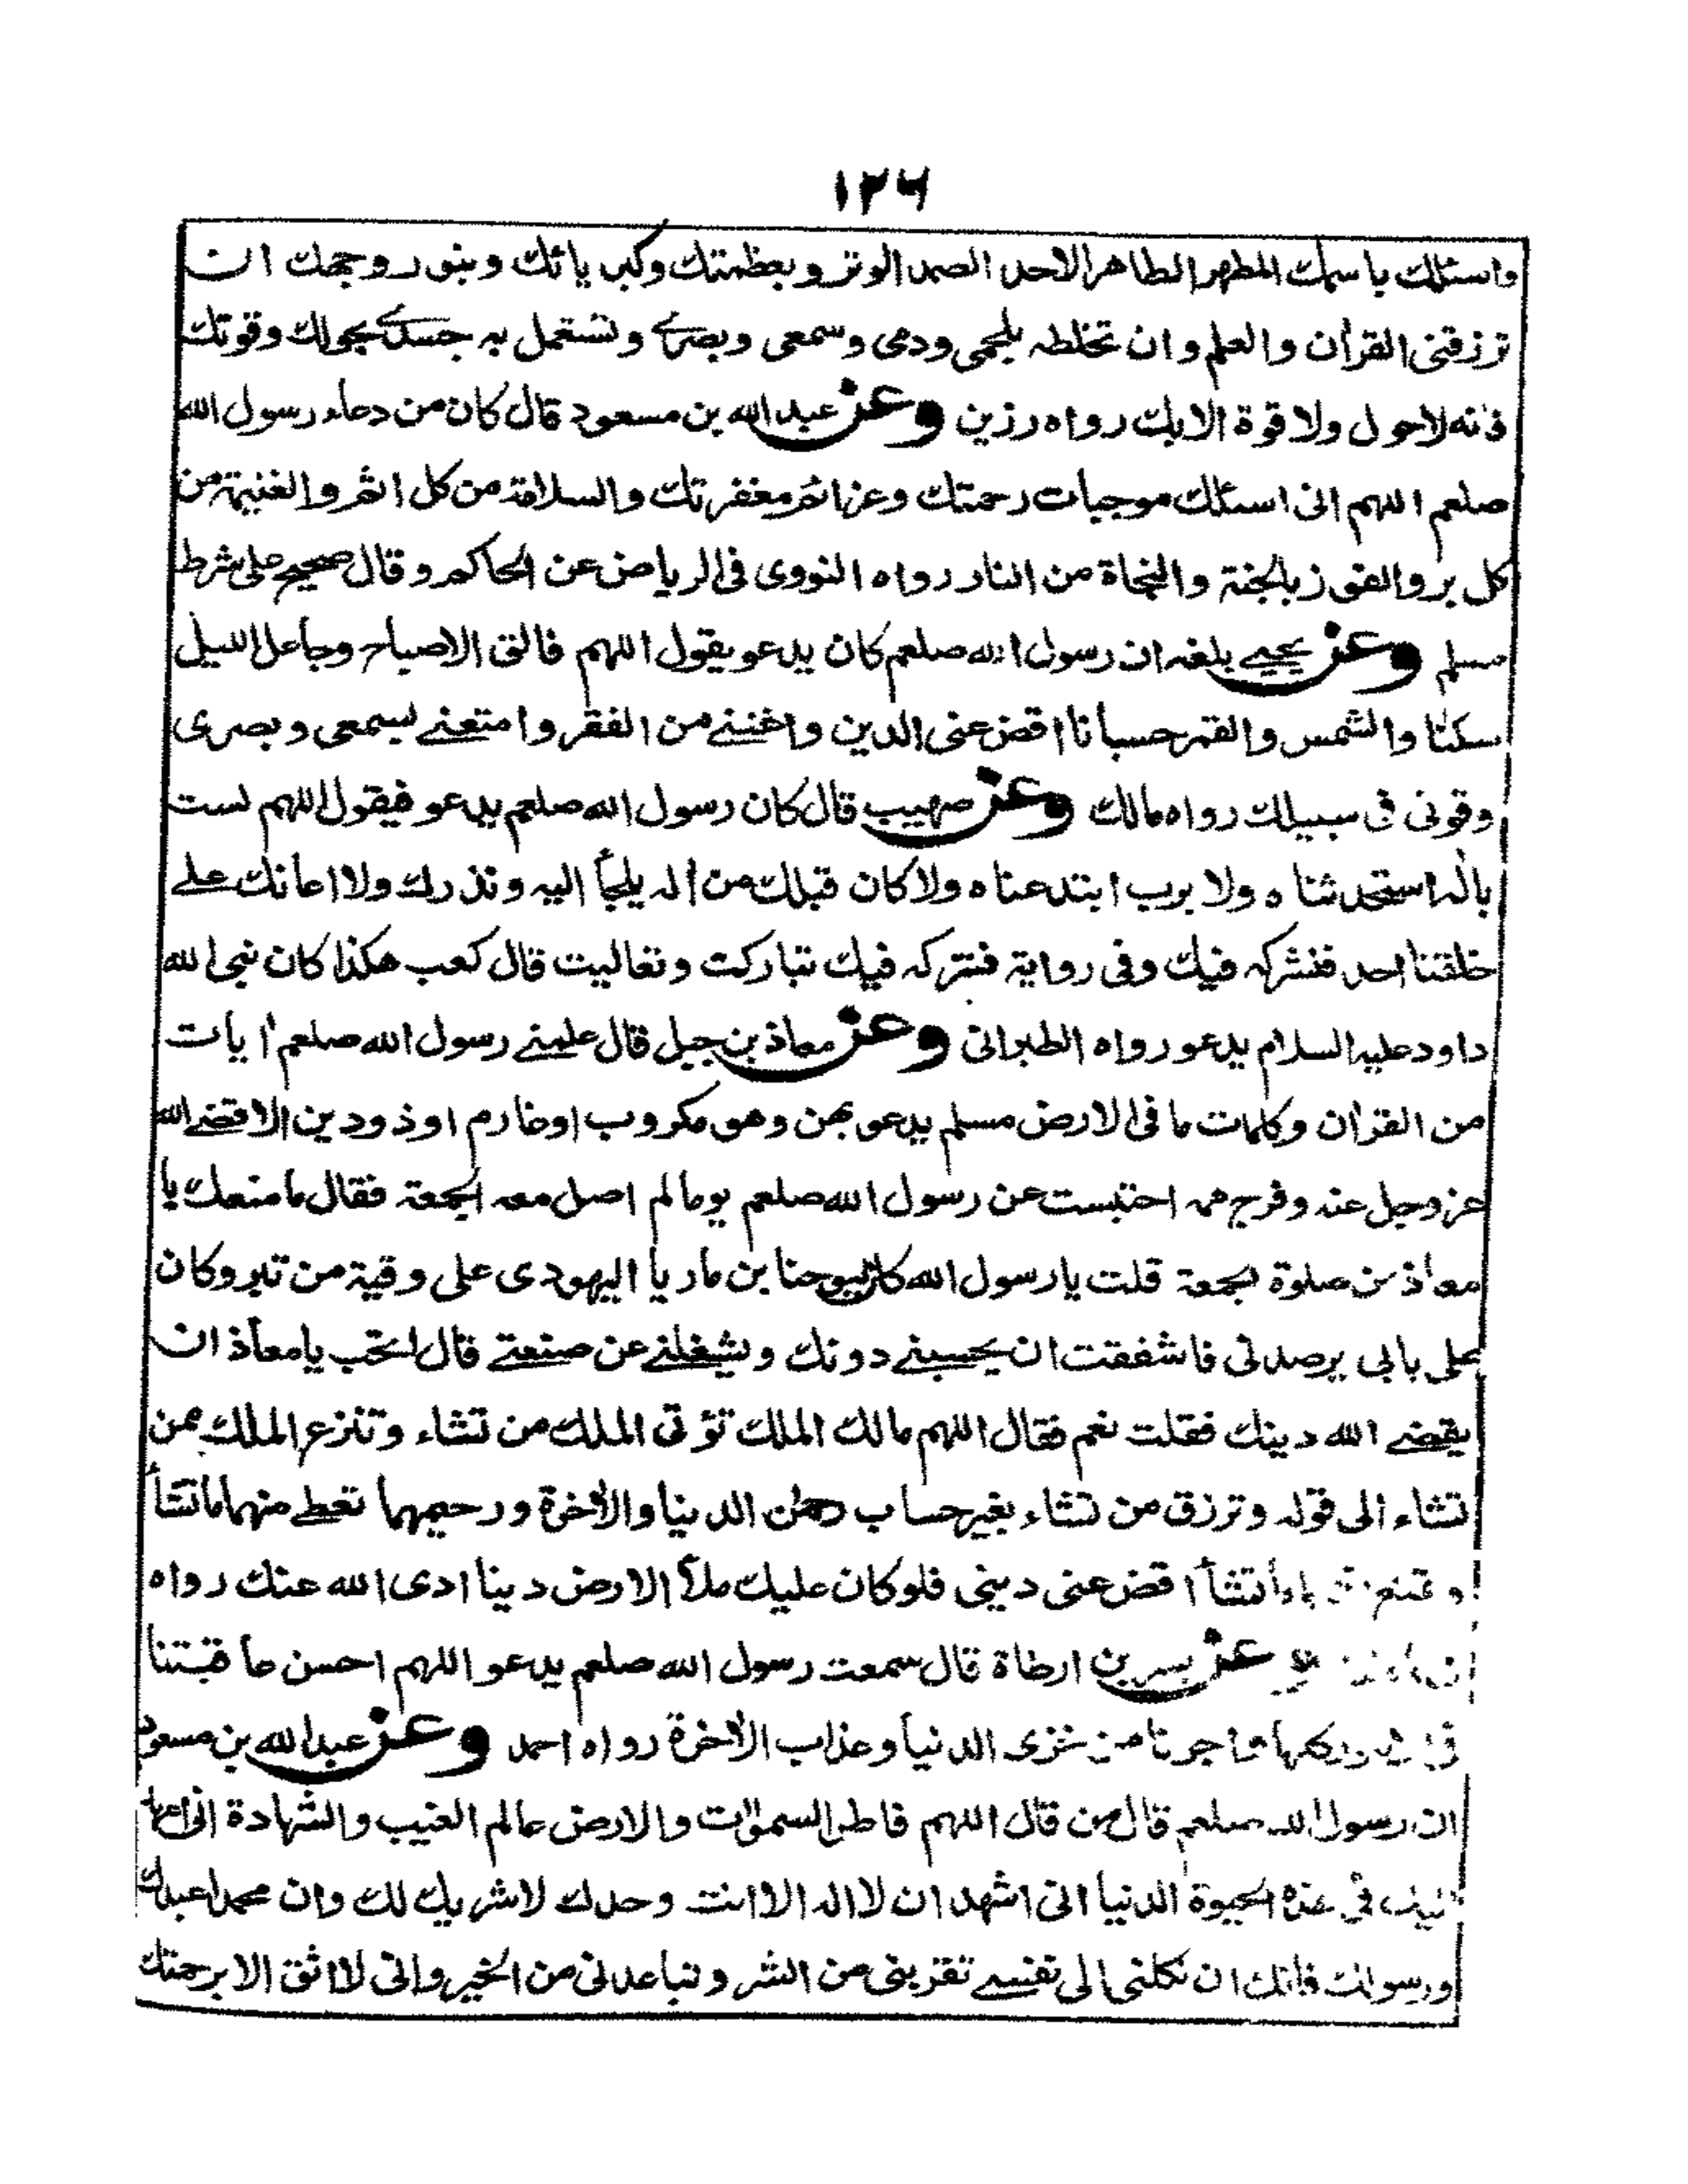 ١٢٦
واسئلك باسمك المطهر الطاهر الاحد الصمد الوتر وبعظمتك وكبريائك وبنور وجهك ان
ترزقنى القرأن والعلم وان تخلطه بلحمى ودمى وسمعى وبصرے وتستعمل به جسدے بحولك وقوتك
فانه لاحول ولا قوة الا بك رواه رزين وعن عبد الله بن مسعود قال كان من دعاء رسول الله
صلعم اللهم انى اسئلك موجبات رحمتك وعزائم مغفرتك والسلامة من كل اثم والغنيمة من
كل بر والفوز بالجنة والنجاة من النار رواه النووى فى الرياض عن الحاكم وقال صحيح على شرط
مسلم وعن يحيے بلغه ان رسول الله صلعم كان يدعو يقول اللهم فالق الاصباح وجاعل الليل
سكنا والشمس والقمر حسبانا اقض عنى الدين واغننے من الفقر وامتعنے بسمعى وبصرى
وقونى فى سبيلك رواه مالك وعن صهيب قال كان رسول الله صلعم يدعو فيقول اللهم لست
باله استحدثناه ولا برب ابتدعناه ولا كان قبلك من اله يلجأ اليه ونذرك ولا اعانك علے
خلقنا احد فنشركه فيك وفى رواية فنتركه فيك تباركت وتعاليت قال كعب هكذا كان نبى الله
داود عليه السلام يدعو رواه الطبرانى وعن معاذ بن جبل قال علمنے رسول الله صلعم أيات
من القرأن وكلمات ما فى الارض مسلم يدعو بهن وهو مكروب اوغارم اوذودين الا قضے الله
عز وجل عنه وفرج همه احتبست عن رسول الله صلعم يوما لم اصل معه الجمعة فقال ما منعك يا
معاذ من صلوة الجمعة قلت يا رسول الله كان ليوحنا بن ماريا اليهودى على وقية من تبر وكان
على بابى يرصدنى فاشفقت ان يحبسنے دونك ويشغلنے عن صنعتے قال اتحب يا معاذ ان
يقضے الله دينك فقلت نعم فقال اللهم مالك الملك تؤتى الملك من تشاء وتنزع الملك ممن
تشاء الى قوله وترزق من تشاء بغير حساب رحمن الدنيا والأخرة ورحيمهما تعطے منهما ماتشأ
وتمنع ماتشأ اقض عنى دينى فلو كان عليك ملأ الارض دينا ادى الله عنك رواه
وعن بسر بن ارطاة قال سمعت رسول الله صلعم يدعو اللهم احسن عاقبتنا
فى الامور كلها واجرنا من خزى الدنيا وعذاب الأخرة رواه احمد وعن عبد الله بن مسعود
ان رسول الله صلعم قال من قال اللهم فاطر السموات والارض عالم الغيب والشهادة انى اعهد
اليك فى هذه الحيوة الدنيا انى اشهد ان لا اله الا انت وحدك لا شريك لك وان محمدا عبدك
ورسولك فانك ان تكلنى الى نفسے تقربنى من الشر وتباعدنى من الخير وانى لا اثق الا برحمتك